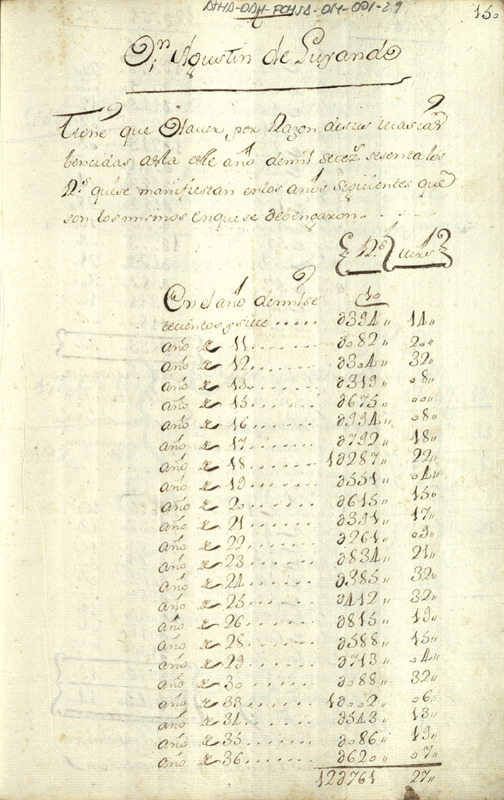 ATHA-DAH-FCHSA-OM-001-29
150
Dn. Agustin de Luyando
Tiene que Hauer, por Razon de sus
bencidas asta este año de mil setez.s sesenta los
Rs. que se manifiestan en los años siguientes que
son los mismos en que se debengaron.
Rs. Mrs
En el año de mil se
tecientos y siete ..... ∂394,, 14,,
año de 11 ....... ∂082,, 20,,
año de 12 ....... ∂304,, 32,,
año de 13 ....... ∂319,, 08,,
año de 15 ....... ∂675,, 00,,
año de 16 ....... ∂994,, 08,,
año de 17 ....... ∂792,, 18,,
año de 18 ....... 1∂287,, 22,,
año de 19 ....... ∂551,, 04,,
año de 20 ....... ∂615,, 15,,
año de 21 ....... ∂391,, 17,,
año de 22 ....... ∂261,, 09,,
año de 23 ....... ∂834,, 21,,
año de 24 ....... ∂385,, 32,,
año de 25 ....... ∂412,, 32,,
año de 26 ....... ∂815,, 19,,
año de 28 ....... ∂588,, 15,,
año de 29 ....... ∂713,, 04,,
año de 30 ....... ∂088,, 32,,
año de 33 ....... 1∂002,, 06,,
año de 34 ....... ∂543,, 13,,
año de 35 ....... ∂086,, 19,,
año de 36 ....... ∂620,, 07,,
12∂761 27,,